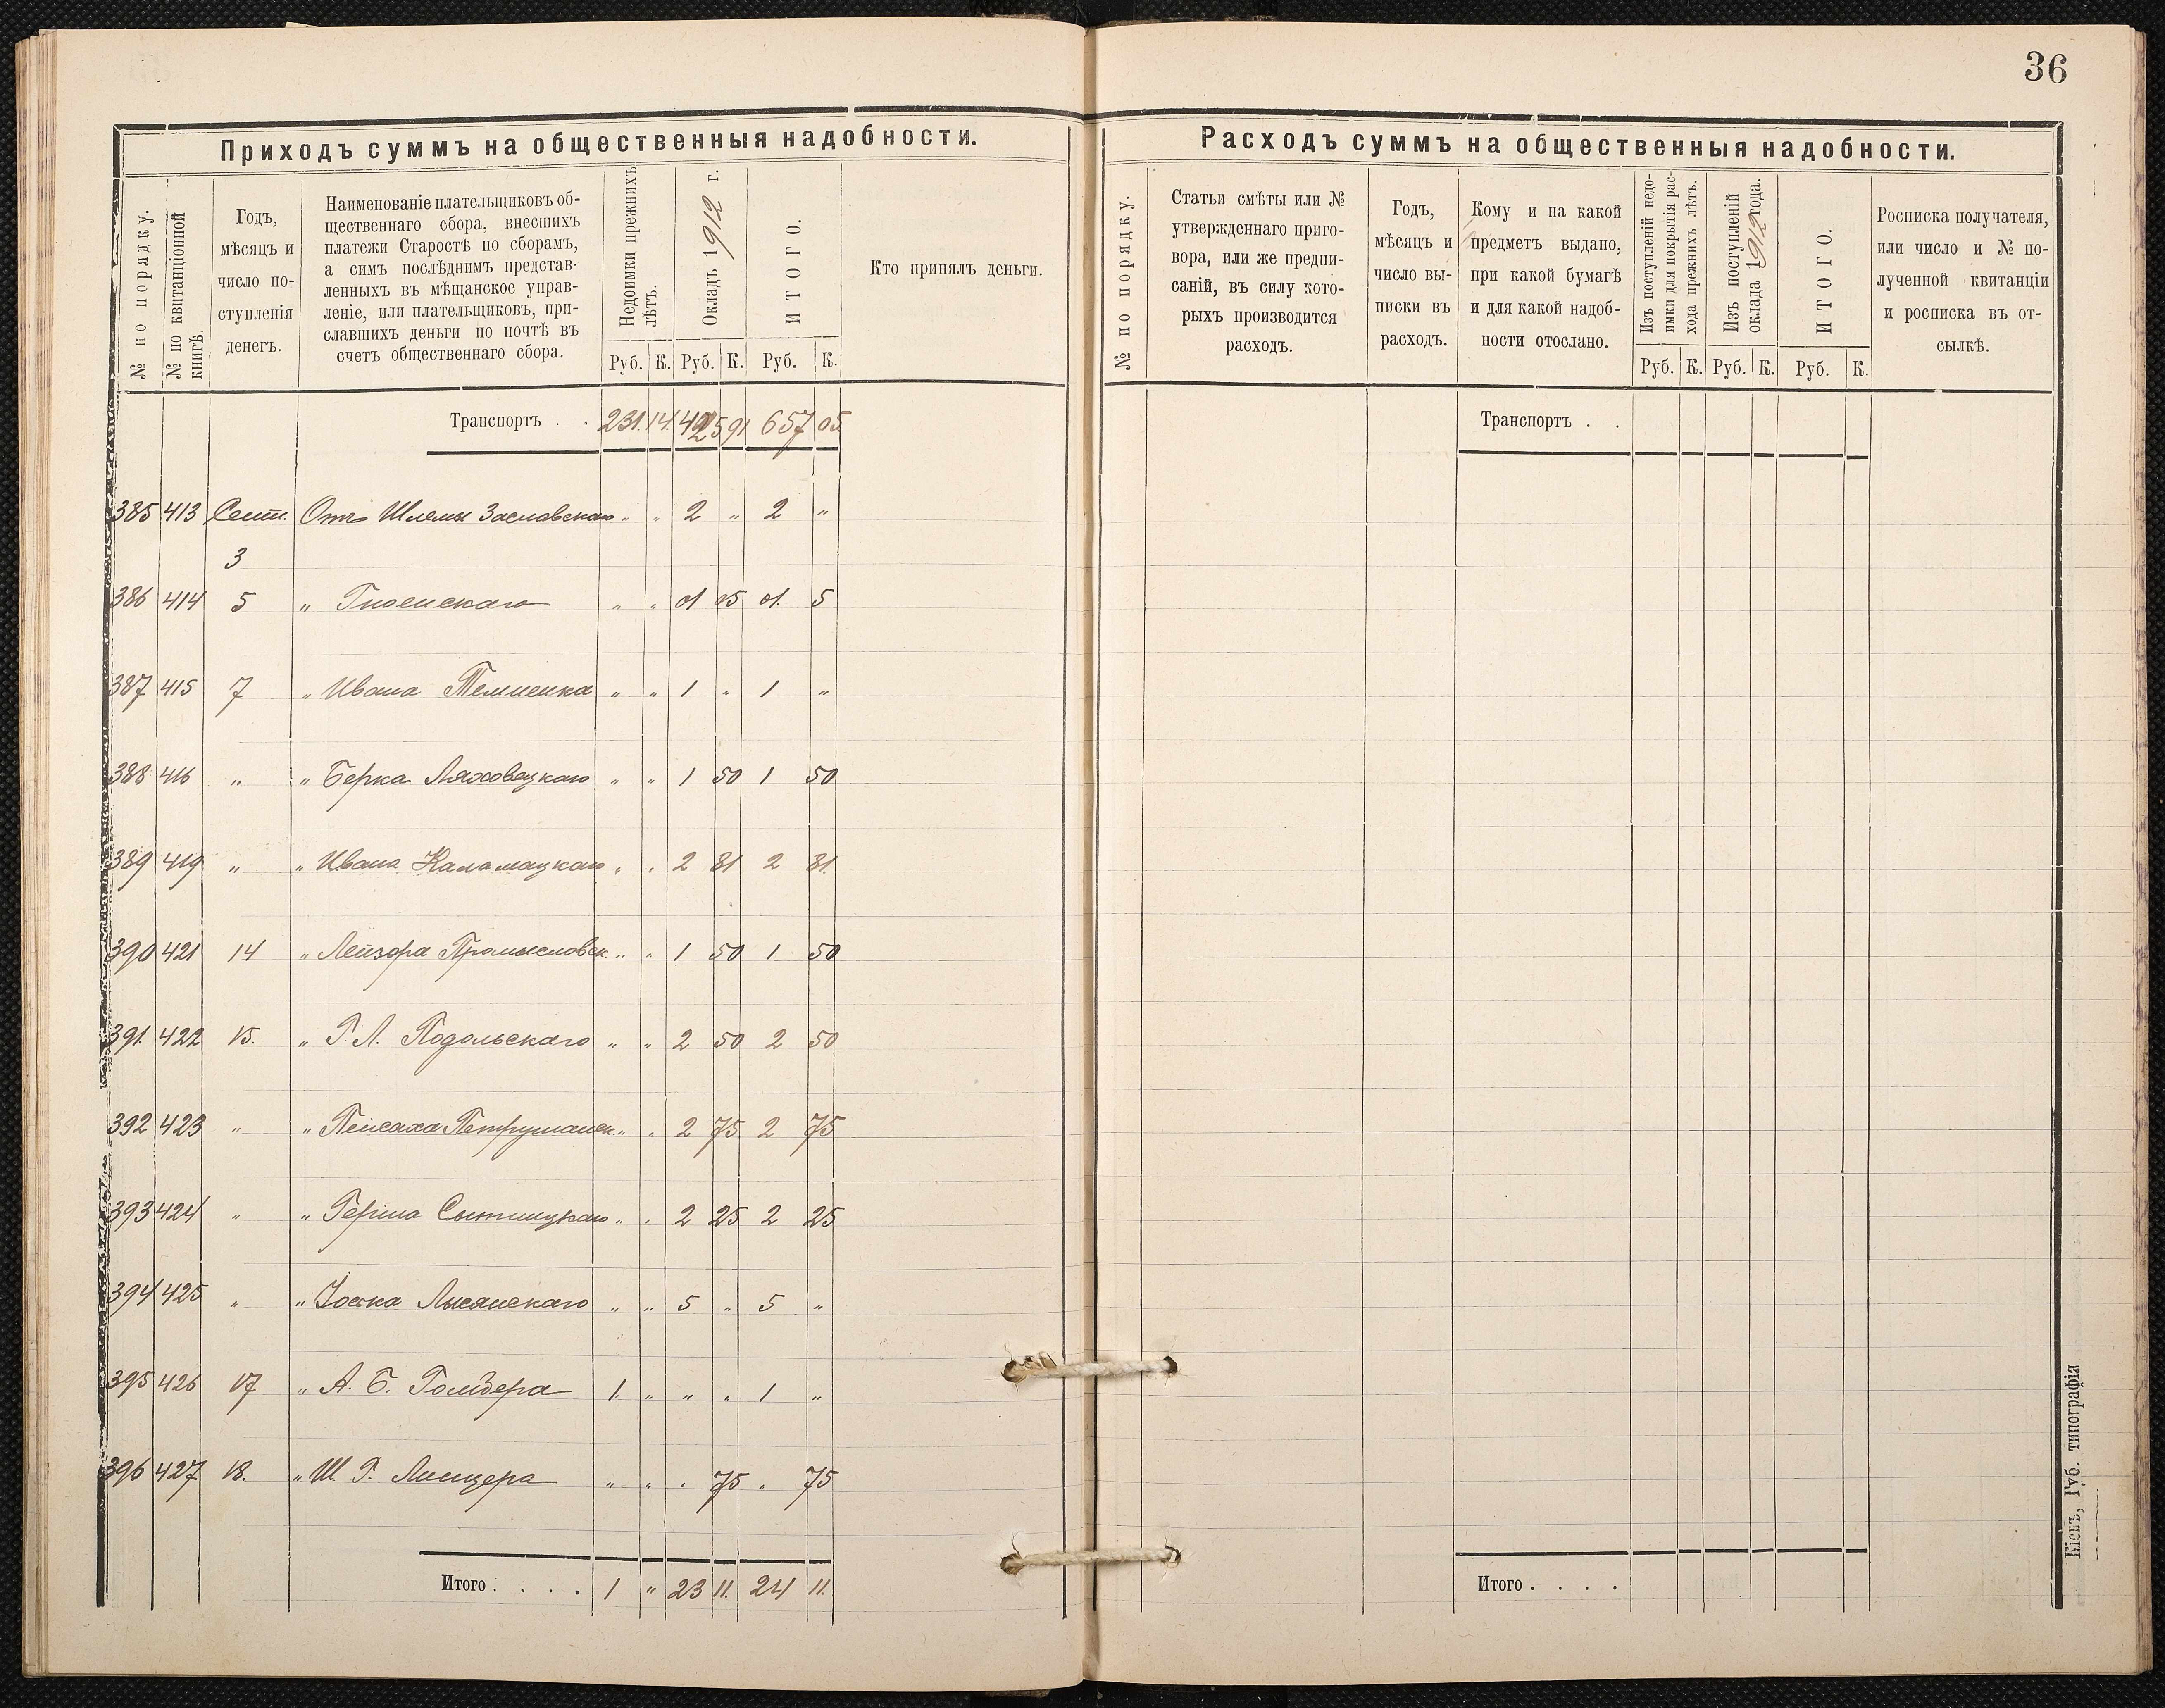 36
Приходъ суммъ на общественныя надобности.
№ по порядку.
№ по квитанціонной
книгѣ.
Годъ,
мѣсяцъ и
число по-
ступленія
денегъ.
Наименованіе плательщиковъ об-
щественнаго сбора, внесшихъ
платежи Старостѣ по сборамъ,
а симъ послѣднимъ представ-
ленныхъ въ мѣщанское управ-
леніе, или плательщиковъ, при-
славшихъ деньги по почтѣ въ
счетъ общественнаго сбора.
Недоимки прежнихъ
лѣтъ.
Окладъ 1912 г.
ИТОГО.
Руб. К. Руб. К. Руб. К.
Кто принялъ деньги.
Транспортъ . . 231. 14. 425 91 657 05
385 413 Сент. Отъ Шлемы Заславскаго " " 2 " 2 "
3
386 414 5 " " " 01 05 01. 5
387 415 7 " Ивана Темненка " " 1 " 1 "
388 416 " " Берка Ляховецкаго " " 1 50 1 50
389 419 " " Ивана Каламацкаго " " 2 81 2 81.
390 421 14 " Лейзора Промысловск. " " 1 50 1 50
391. 422 15. " Г. Л. Подольскаго " " 2 50 2 50
392 423 " " Пейсаха Петрушанск. " " 2 75 2 75
393 424 " " Герша Сытницкаго " " 2 25 2 25
394 425 " " Іоська Лысянскаго " " 5 " 5 "
395 426 17 " А. Б. 1. " " " 1 "
396 427 18. " Ш. Г. " " . 75 . 75
Итого . . . . 1 " 23 11. 24 11.
Расходъ суммъ на общественныя надобности.
№ по порядку.
Статьи смѣты или №
утвержденнаго приго-
вора, или же предпи-
саній, въ силу кото-
рыхъ производится
расходъ.
Годъ,
мѣсяцъ и
число вы-
писки въ
расходъ.
Кому и на какой
предметъ выдано,
при какой бумагѣ
и для какой надоб-
ности отослано.
Изъ поступленій недо-
имки для покрытія рас-
хода прежнихъ лѣтъ.
Изъ поступленій
оклада 1912 года.
ИТОГО.
Руб. К. Руб. К. Руб. К.
Росписка получателя,
или число и № по-
лученной квитанціи
и росписка въ от-
сылкѣ.
Транспортъ . .
Итого . . . .
Кіевъ, Губ. типографія